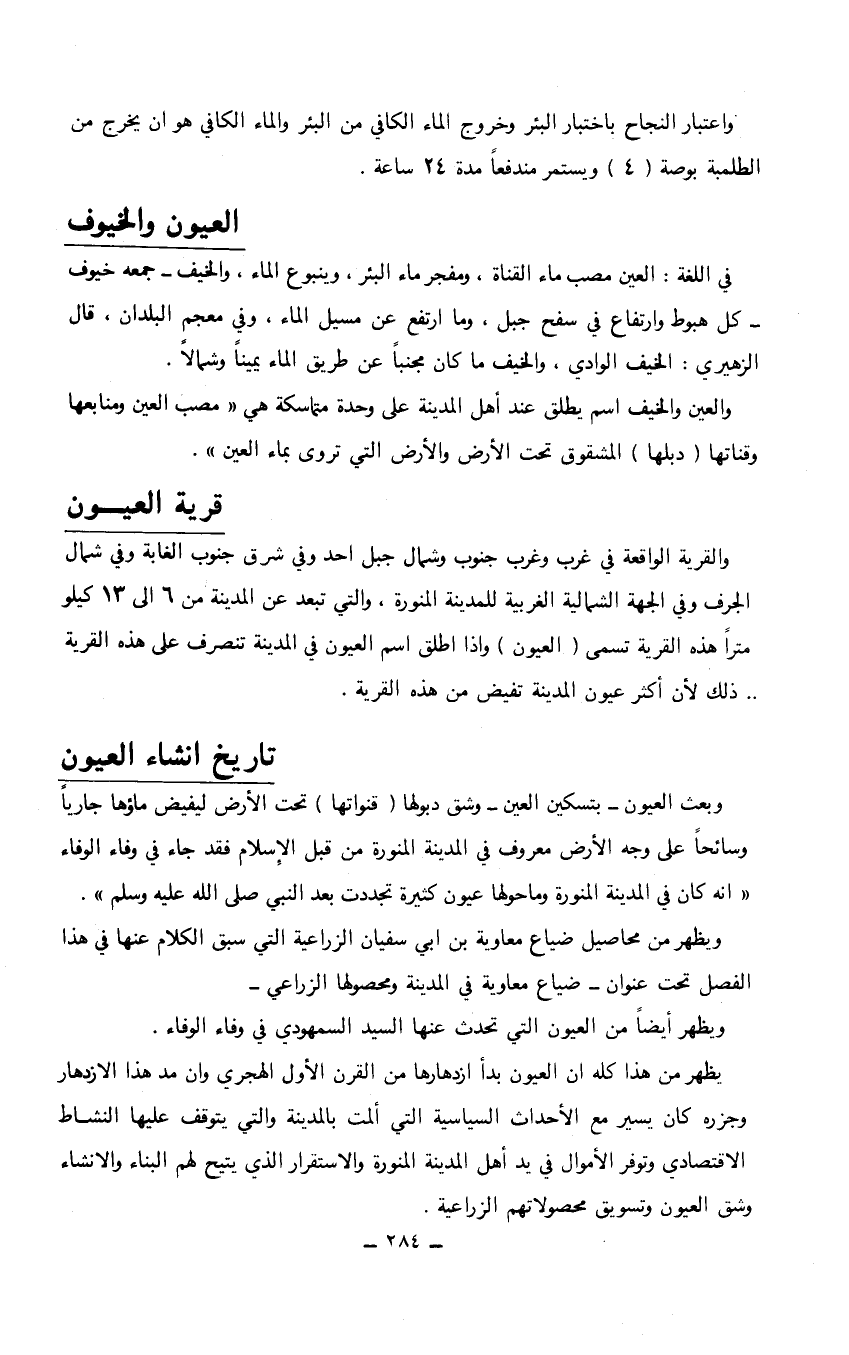 واعتبار النجاح باختبار البئر وخروج الماء الكافي من البئر والماء الكافي هو ان يخرج من
الطلمبة بوصة ( ٤ ) ويستمر مندفعاً مدة ٢٤ ساعة .
العيون والخيوف
في اللغة : العين مصب ماء القناة ، ومفجر ماء البئر ، وينبوع الماء ، والخيف ـ جمعه خيوف
ـ كل هبوط وارتفاع في سفح جبل ، وما ارتفع عن مسيل الماء ، وفي معجم البلدان ، قال
الزهيري : الخيف الوادي ، والخيف ما كان مجنباً عن طريق الماء يميناً وشمالاً .
والعين والخيف اسم يطلق عند أهل المدينة على وحدة متماسكة هي « مصب العين ومنابعها
وقناتها ( دبلها ) المشقوق تحت الأرض والأرض التي تروى بماء العين » .
قرية العيـــون
والقرية الواقعة في غرب وغرب جنوب وشمال جبل احد وفي شرق جنوب الغابة وفي شمال
الجرف وفي الجهة الشمالية الغربية للمدينة المنورة ، والتي تبعد عن المدينة من ٦ الى ١٣ كيلو
متراً هذه القرية تسمى ( العيون ) واذا اطلق اسم العيون في المدينة تنصرف على هذه القرية
.. ذلك لأن أكثر عيون المدينة تفيض من هذه القرية .
تاريخ انشاء العيون
وبعث العيون ـ بتسكين العين ـ وشق دبولها ( قنواتها ) تحت الأرض ليفيض ماؤها جارياً
وسائحاً على وجه الأرض معروف في المدينة المنورة من قبل الإسلام فقد جاء في وفاء الوفاء
« انه كان في المدينة المنورة وماحولها عيون كثيرة تجددت بعد النبي صلى الله عليه وسلم » .
ويظهر من محاصيل ضياع معاوية بن ابي سفيان الزراعية التي سبق الكلام عنها في هذا
الفصل تحت عنوان ـ ضياع معاوية في المدينة ومحصولها الزراعي ـ
ويظهر أيضاً من العيون التي تحدث عنها السيد السمهودي في وفاء الوفاء .
يظهر من هذا كله ان العيون بدأ ازدهارها من القرن الأول الهجري وان مد هذا الازدهار
وجزره كان يسير مع الأحداث السياسية التي ألمت بالمدينة والتي يتوقف عليها النشـاط
الاقتصادي وتوفر الأموال في يد أهل المدينة المنورة والاستقرار الذي يتيح لهم البناء والانشاء
وشق العيون وتسويق محصولاتهم الزراعية .
ـ ٢٨٤ ـ